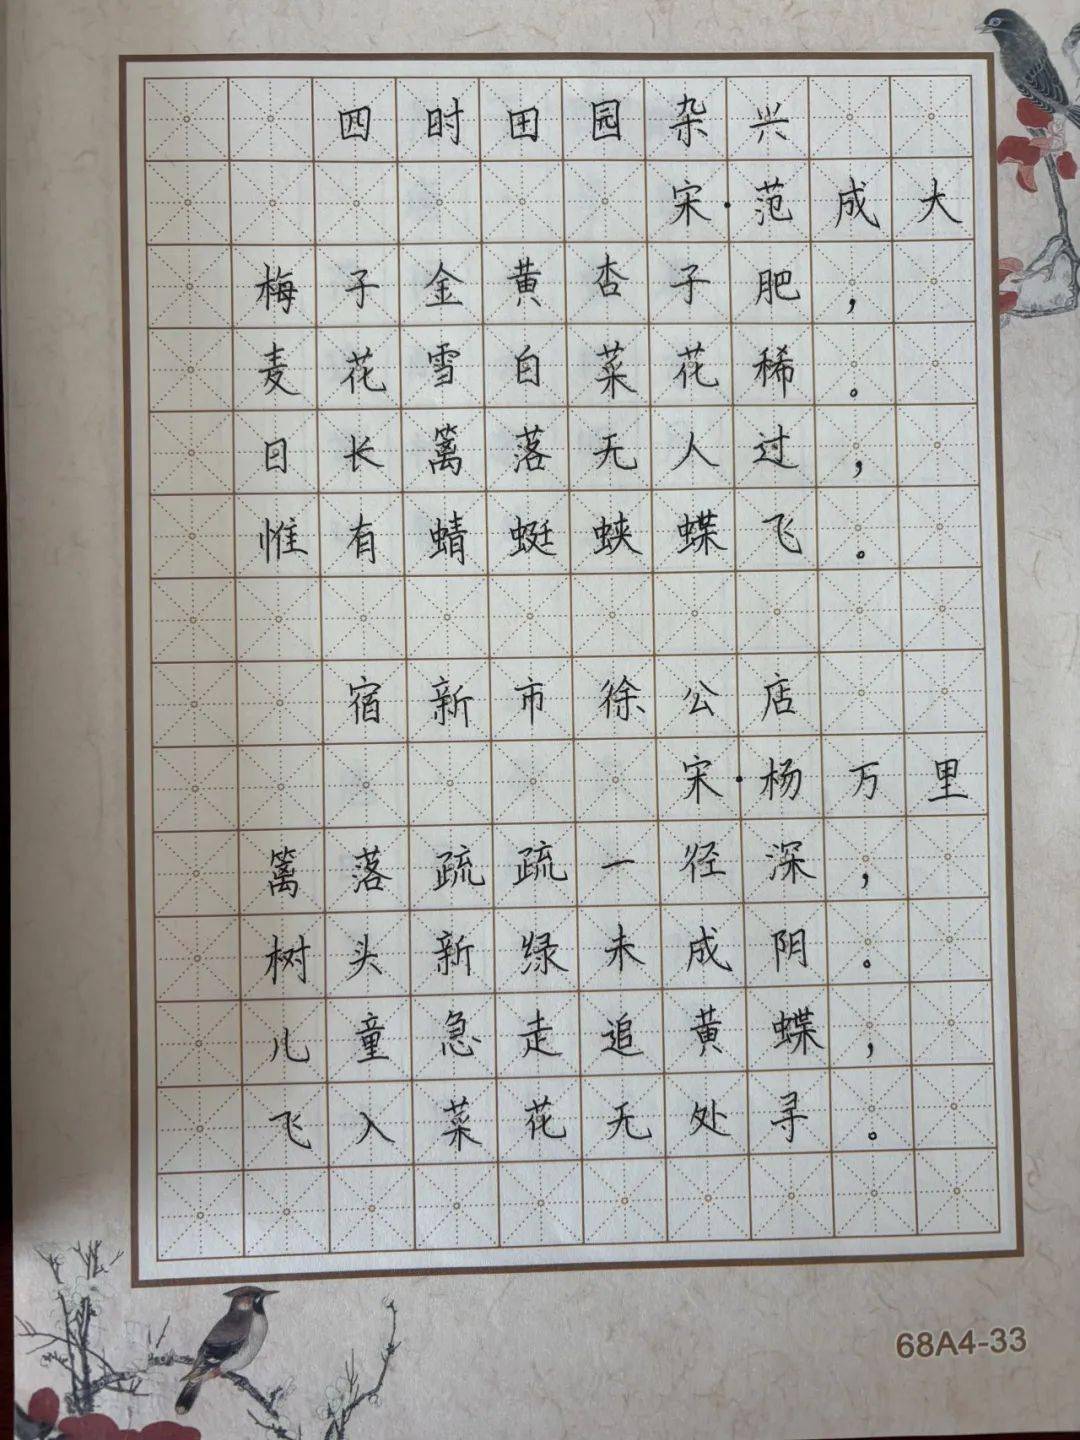 四时田园杂兴
宋·范成大
梅子金黄杏子肥，
麦花雪白菜花稀。
日长篱落无人过，
惟有蜻蜓蛱蝶飞。
宿新市徐公店
宋·杨万里
篱落疏疏一径深，
树头新绿未成阴。
儿童急走追黄蝶，
飞入菜花无处寻。
68A4-33